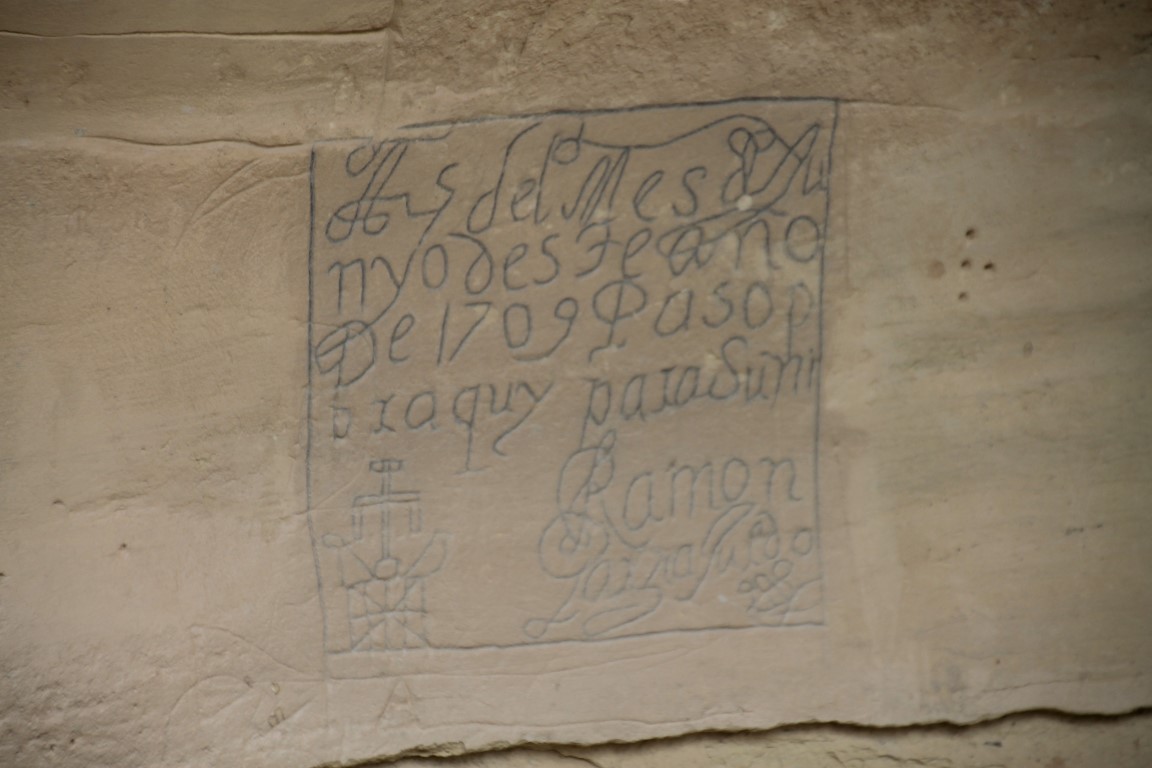 A 5 del Mes D Ju
nyo deste año
De 1709 Paso p
or aquy para Suñi
Ramon
Garzia Jurado
A